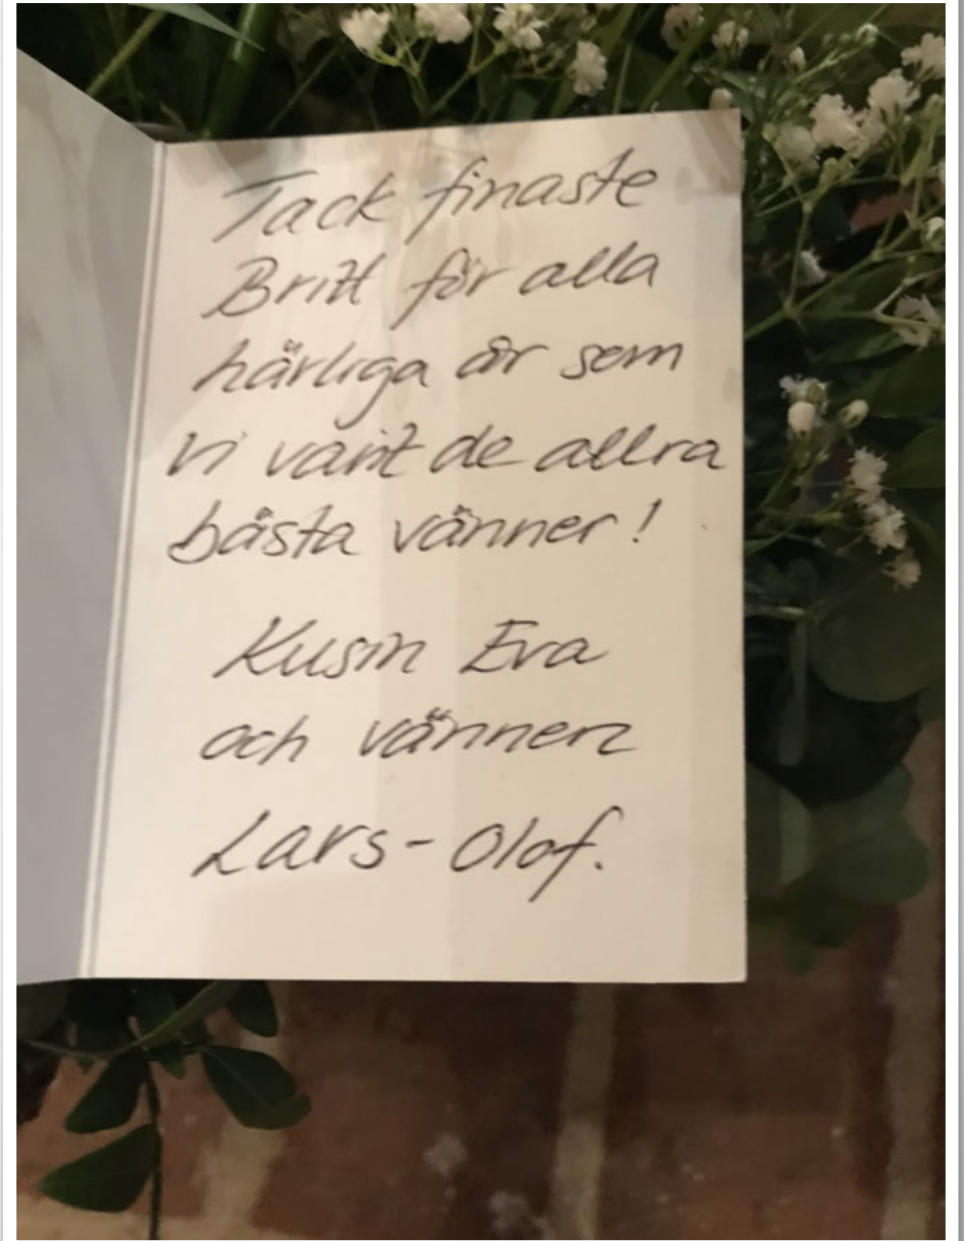 Tack finaste
Britt för alla
härliga år som
vi varit de allra
bästa vänner!
Kusin Eva
och vännen
Lars-Olof.